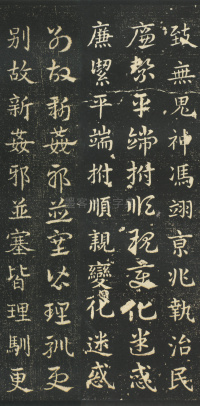 致無鬼神馮翊亰兆執治民
廉絜平端拊順親變化迷惑
廉絜平端拊順親變化迷惑
別故新姦邪並塞皆理馴更
別故新姦邪並塞皆理馴更